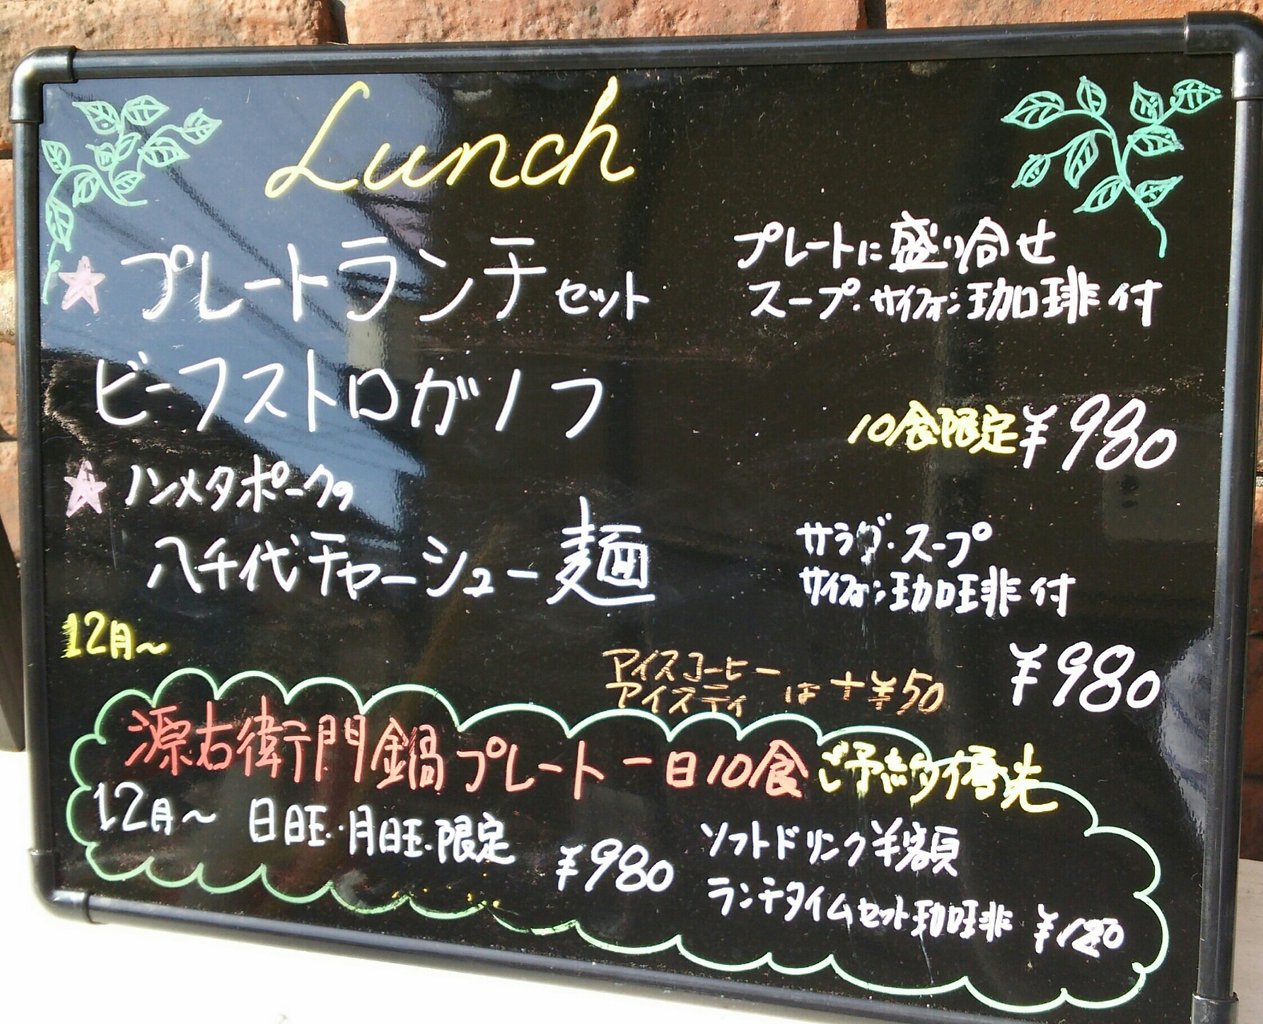 Lunch
★プレートランチセット
プレートに盛り合せ
スープ・サイフォン珈琲付
ビーフストロガノフ
10食限定¥980
★ハンメタポークの
八千代チャーシュー麺
サラダ・スープ
サイフォン珈琲付
¥980
12月〜
アイスコーヒー
アイスティ は+¥50
源右衛門鍋プレート一日10食ご予約優先
12月〜 日曜・月曜・限定 ¥980
ソフトドリンク半額
ランチタイムセット珈琲